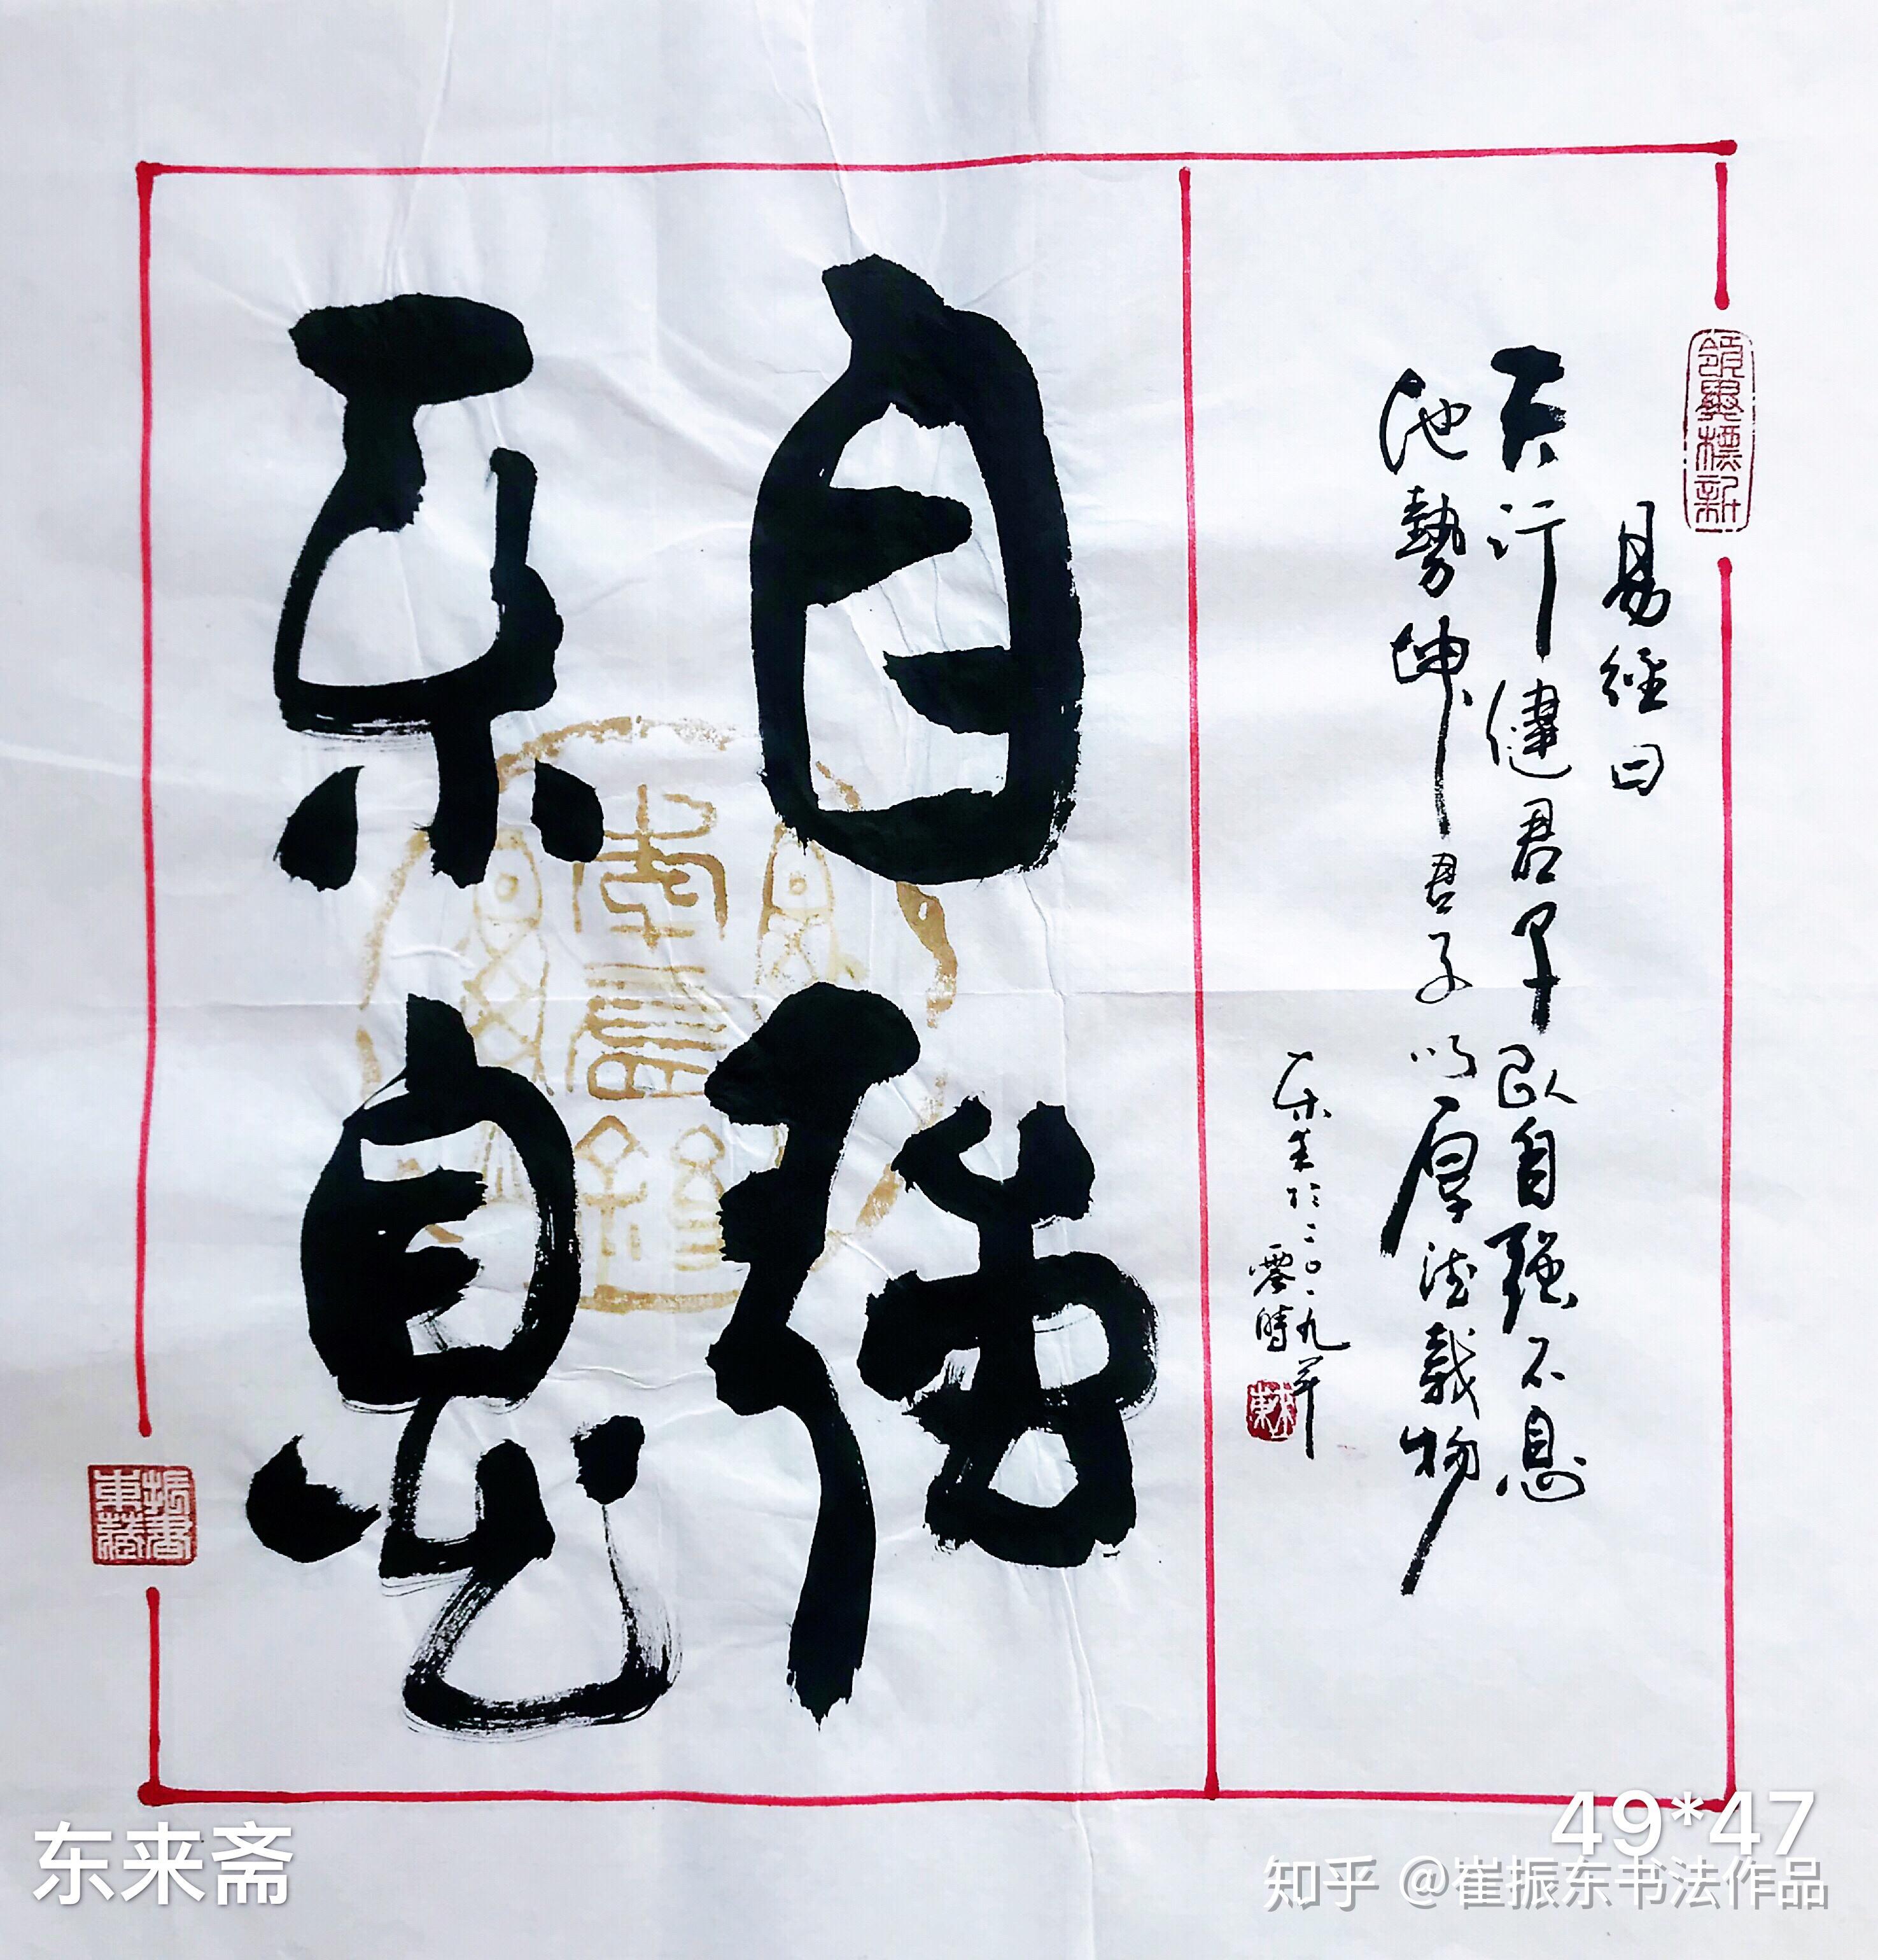 自强
不息
易经曰
天行健君子以自强不息
地势坤君子以厚德载物
东来于二〇一九年
零时
领异标新
振东书藏
东来斋
49*47
知乎 @崔振东书法作品